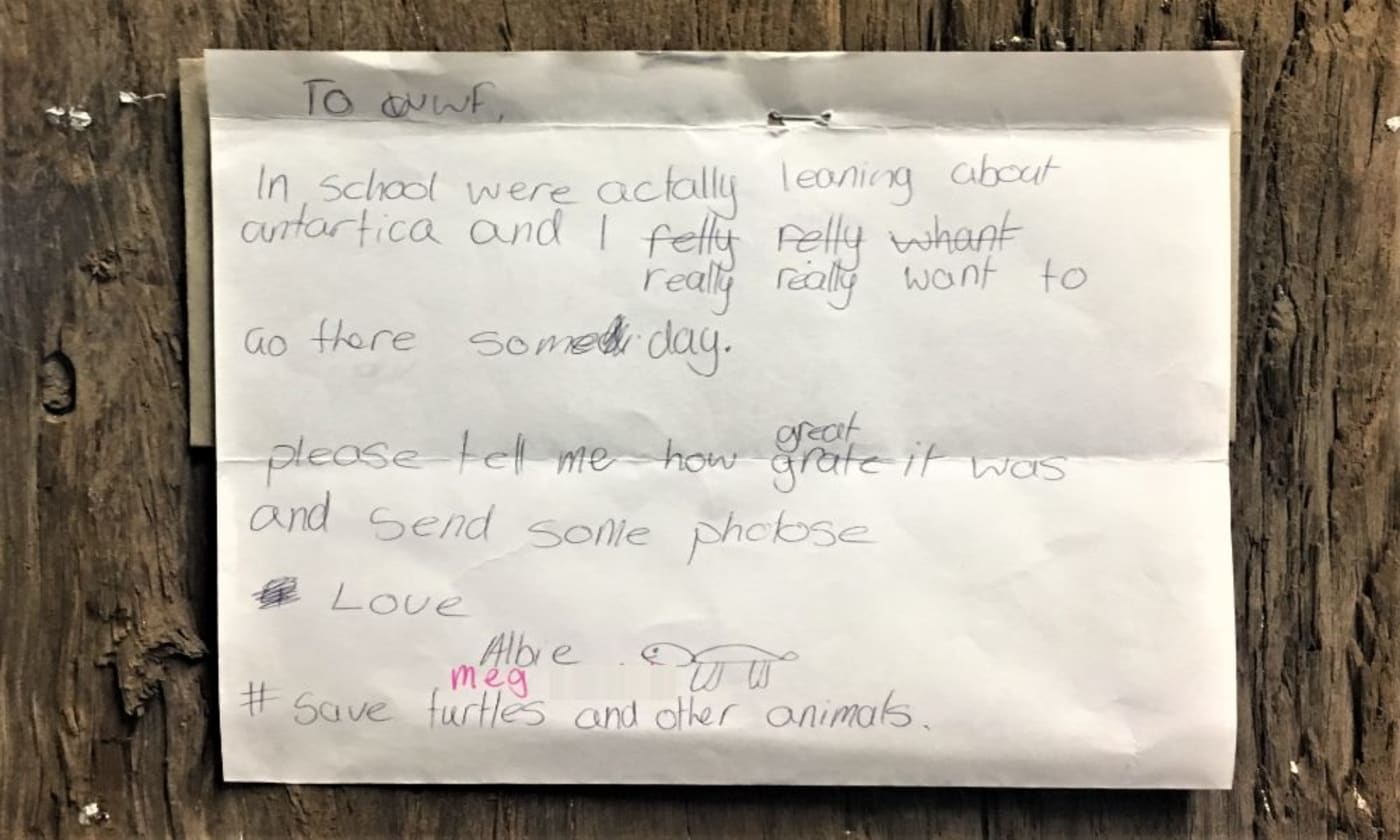 To WWF,
In school were actally leaning about
antartica and I felly relly whant
really really want to
Go there some day.
great
please tell me how grate it was
and send some photose
Love
Albie
meg
# save turtles and other animals.